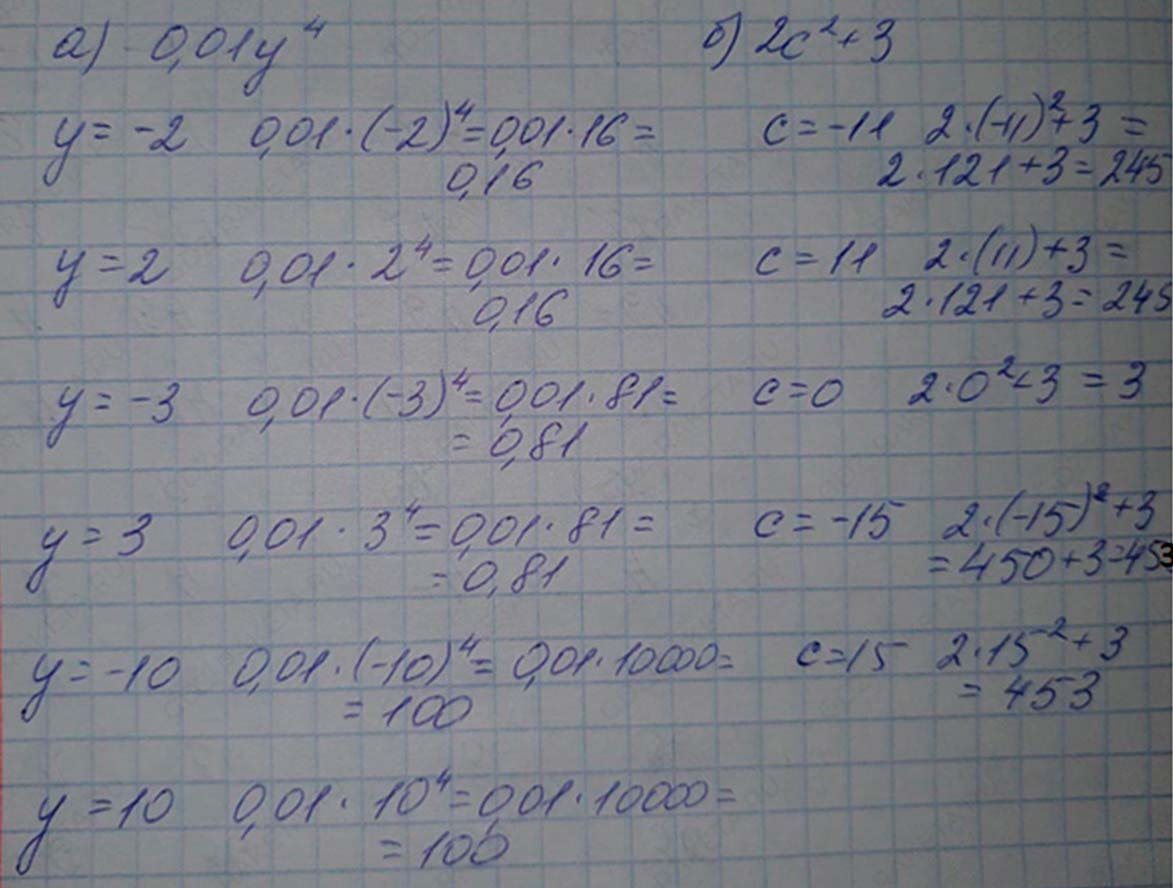 а) 0,01y⁴
y = -2 0,01·(-2)⁴=0,01·16=
0,16
y = 2 0,01·2⁴=0,01·16=
0,16
y = -3 0,01·(-3)⁴=0,01·81=
= 0,81
y = 3 0,01·3⁴=0,01·81=
= 0,81
y = -10 0,01·(-10)⁴=0,01·10000=
= 100
y = 10 0,01·10⁴=0,01·10000=
= 100
б) 2c²+3
c = -11 2·(-11)²+3 =
2·121+3=245
c = 11 2·(11)+3 =
2·121+3=245
c = 0 2·0²+3 = 3
c = -15 2·(-15)²+3
= 450+3=453
c = 15 2·15²+3
= 453